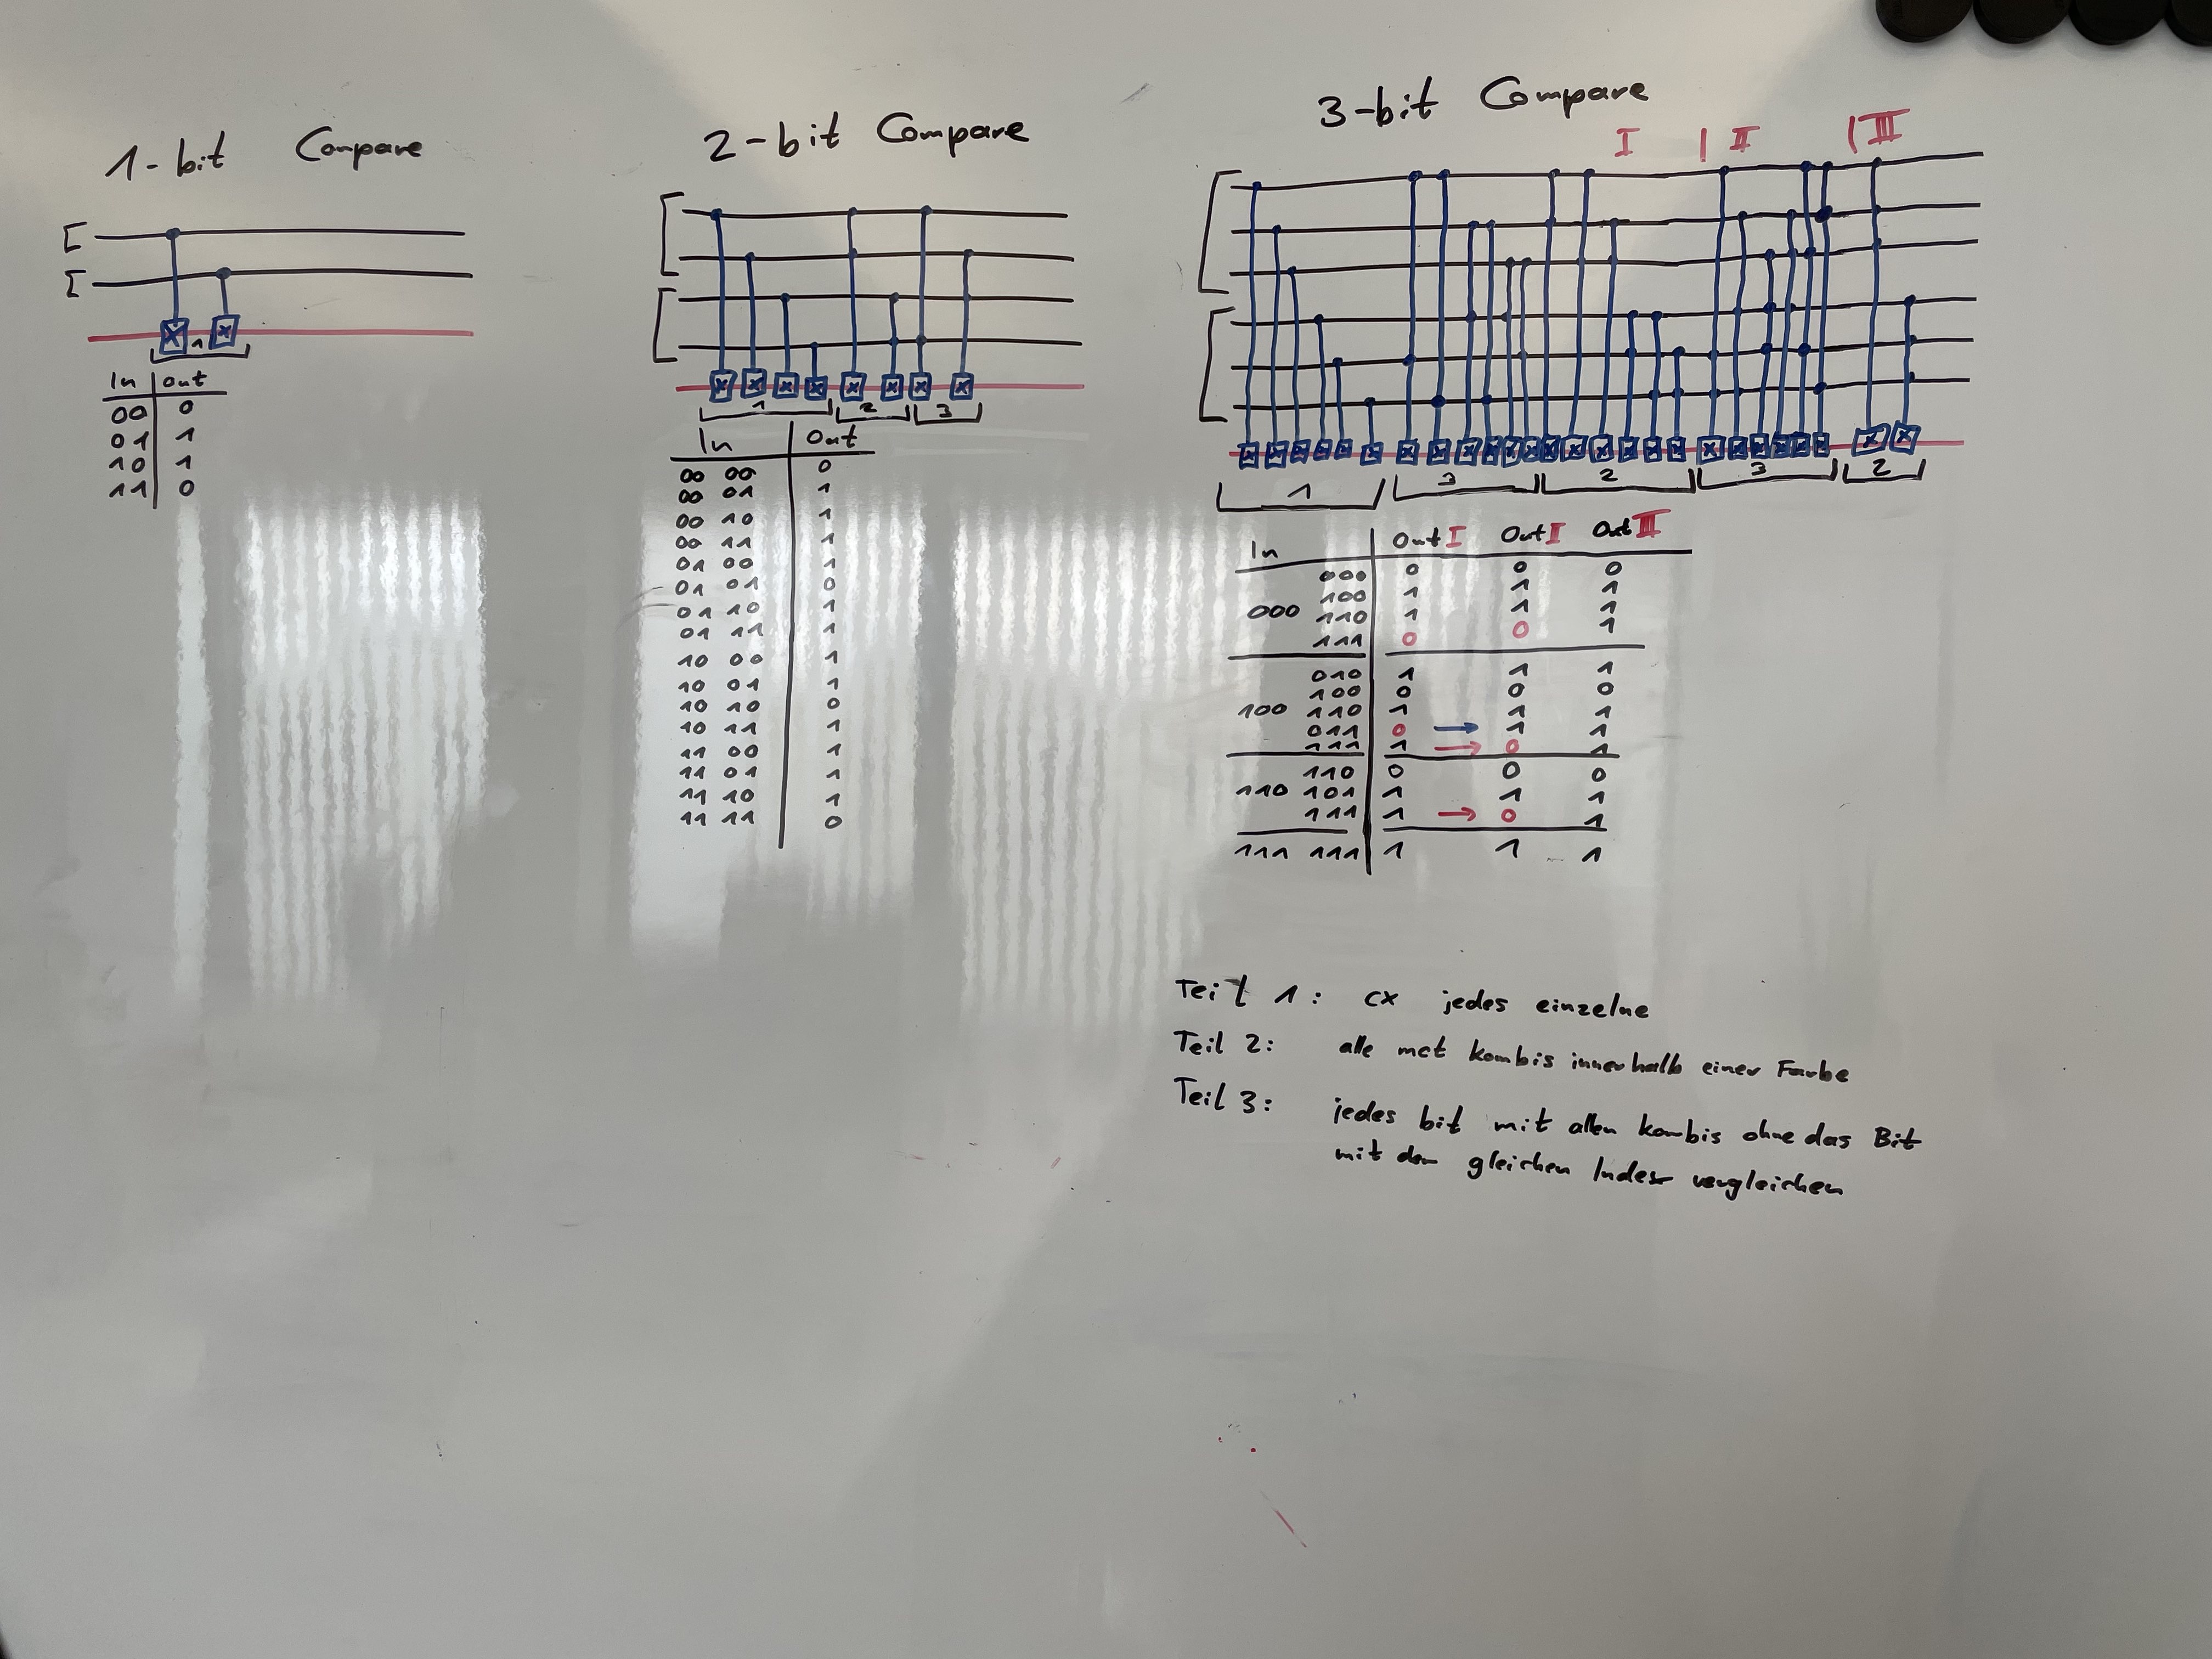 1-bit Compare
1
In Out
00 0
01 1
10 1
11 0
2-bit Compare
1 2 3
In Out
00 00 0
00 01 1
00 10 1
00 11 1
01 00 1
01 01 0
01 10 1
01 11 1
10 00 1
10 01 1
10 10 0
10 11 1
11 00 1
11 01 1
11 10 1
11 11 0
3-bit Compare
I | II | III
1 3 2 3 2
In Out I Out I Out III
000 0 0 0
100 1 1 1
000 110 1 1 1
111 0 0 1
010 1 1 1
100 0 0 0
100 110 1 1 1
011 0 → 1 1
111 1 → 0 1
110 0 0 0
110 101 1 1 1
111 1 → 0 1
111 111 1 1 1
Teil 1: cx jedes einzelne
Teil 2: alle mct kombis innerhalb einer Farbe
Teil 3: jedes bit mit allen kombis ohne das Bit
mit dem gleichen Index vergleichen